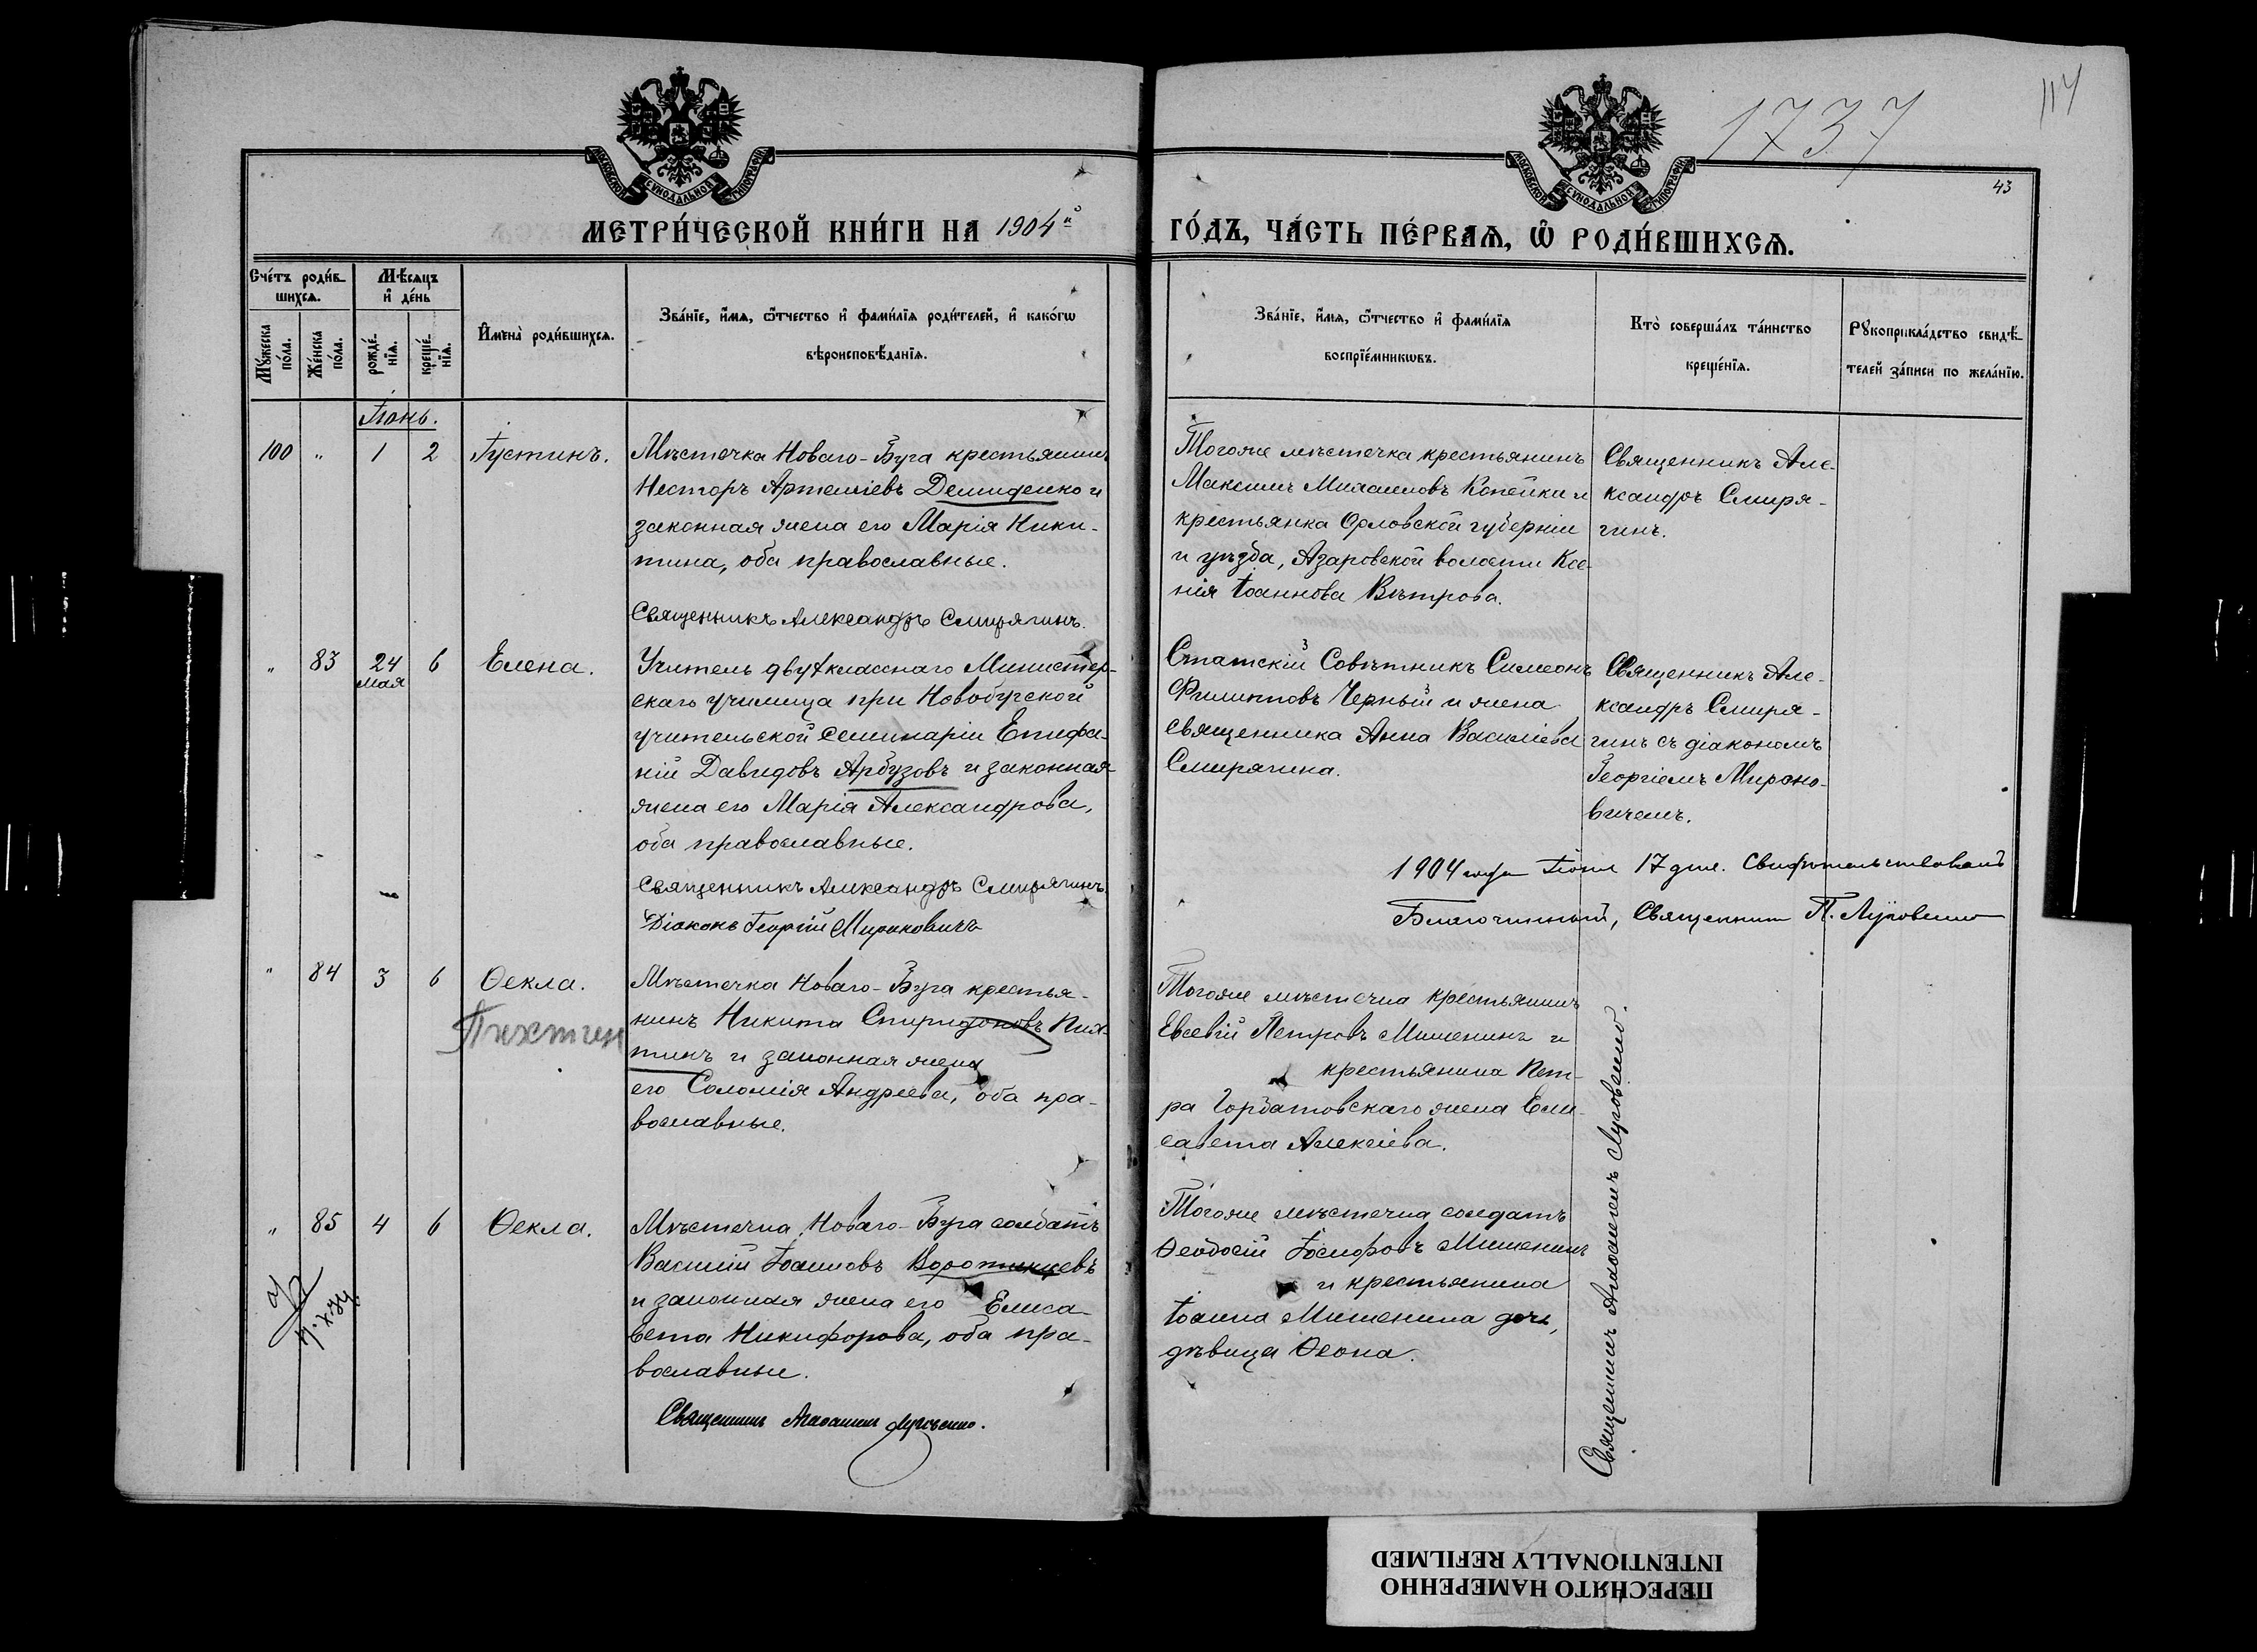 1737
114
43
МОСКОВСКОЙ СУНОДАЛЬНОЙ ТИПОГРАФІИ
МОСКОВСКОЙ СУНОДАЛЬНОЙ ТИПОГРАФІИ
МЕТРИ́ЧЕСКОЙ КНИ́ГИ НА 1904й
ГО́ДЪ, ЧА́СТЬ ПЕ́РВАѦ, Ѽ РОДИ́ВШИХСѦ.
Сче́тъ роди́в-
шихсѧ.
Мѣ́сѧцъ
и҆ де́нь
Мꙋ́жеска
по́ла.
Же́нска
по́ла.
рожде́-
нїѧ.
креще́-
нїѧ.
И҆мена̀ роди́вшихсѧ.
Зва́нїе, и҆́мѧ, ѻ҆́тчество и҆ фами́лїѧ роди́телей, и҆ како́гѡ
вѣроисповѣ́данїѧ.
Зва́нїе, и҆́мѧ, ѻ҆́тчество и҆ фами́лїѧ
воспрїе́мникѡвъ.
Кто̀ соверша́лъ та́инство
креще́нїѧ.
Рꙋкоприкла́дство свидѣ́-
телей за́писи по жела́нїю.
Іюнь.
100 " 1 2 Іустинъ.
Мѣстечка Новаго-Буга крестьянинъ
Несторъ Артеміевъ Демиденко и
законная жена его Марія Ники-
тина, оба православные.
Священникъ Александръ Смирягинъ.
Тогоже мѣстечка крестьянинъ
Максимъ Михаиловъ Копейки и
крестьянка Орловской губерніи
и уѣзда, Азаровской волости Ксе-
нія Іоаннова Вѣтрова.
Священникъ Але-
ксандръ Смиря-
гинъ.
" 83 24 6 Елена.
Мая
Учитель двухкласснаго Министер-
скаго училища при Новобугской
учительской Семинаріи Епифа-
ній Давидовъ Арбузовъ и законная
жена его Марія Александрова,
оба православные.
Священникъ Александръ Смирягинъ
Діаконъ Георгій Мироновичъ
Статскій Совѣтникъ Симеонъ
Филиптовъ Черный и жена
священника Анна Василіева
Смирягина.
Священникъ Але-
ксандръ Смиря-
гинъ съ діакономъ
Георгіемъ Мироно-
вичемъ.
1904 года Іюня 17 дня. Свидѣтельствовалъ
Благочинный, Священник П. Луговенко
" 84 3 6 Ѳекла.
Пихтин
Мѣстечка Новаго-Буга крестья-
нинъ Никита Спиридоновъ Пих-
тинъ и законная жена
его Соломія Андреева, оба пра-
вославные.
Тогоже мѣстечка крестьянинъ
Евсевій Петровъ Мишенинъ и
крестьянина Пет-
ра Горбатовскаго жена Ели-
савета Алексіева.
" 85 4 6 Ѳекла.
Мѣстечка Новаго-Буга солдатъ
Василій Іоанновъ Воротинцевъ
и законная жена его Елиса-
вета Никифорова, оба пра-
вославные.
Священникъ Аѳанасій Луговенко.
Тогоже мѣстечка солдатъ
Ѳеодосій Іосифовъ Мишенинъ
и крестьянина
Іоанна Мишенина дочь,
дѣвица Ѳеона.
Священникъ Аѳанасій Луговенко.
ПЕРЕСНЯТО НАМЕРЕННО
INTENTIONALLY REFILMED